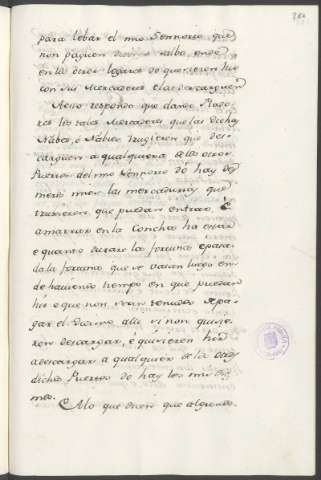 para lebar el mio Sennorio que
non paguen diesmo salbo, ende
en los otros logares do quisieren hir
con sus Mercaderes e las descargaren
Aesto respondo que dando Fiado
res los tales Mercaderes que las dichas
Nabes, ó Nabios trugieren que des-
carguen a qualquiera de los otros
Puertos del mio Sennorio do hay dez
mero mios las mercadurias que
truxieren, que puedan entrar, E
amarrar en la Concha ha estar
e quanto durare la fortuna e pasa
da la fortuna que se vaian luego en-
de haviendo tiempo en que puedan
hir e que non sean tenudos de pa-
gar el Diesmo alli si non quisie-
ren descargar, e quisieren hir
a descargar a qualquier de los otros
dichos Puertos do hay los mis dez
meros.
E A lo que dicen que algunos